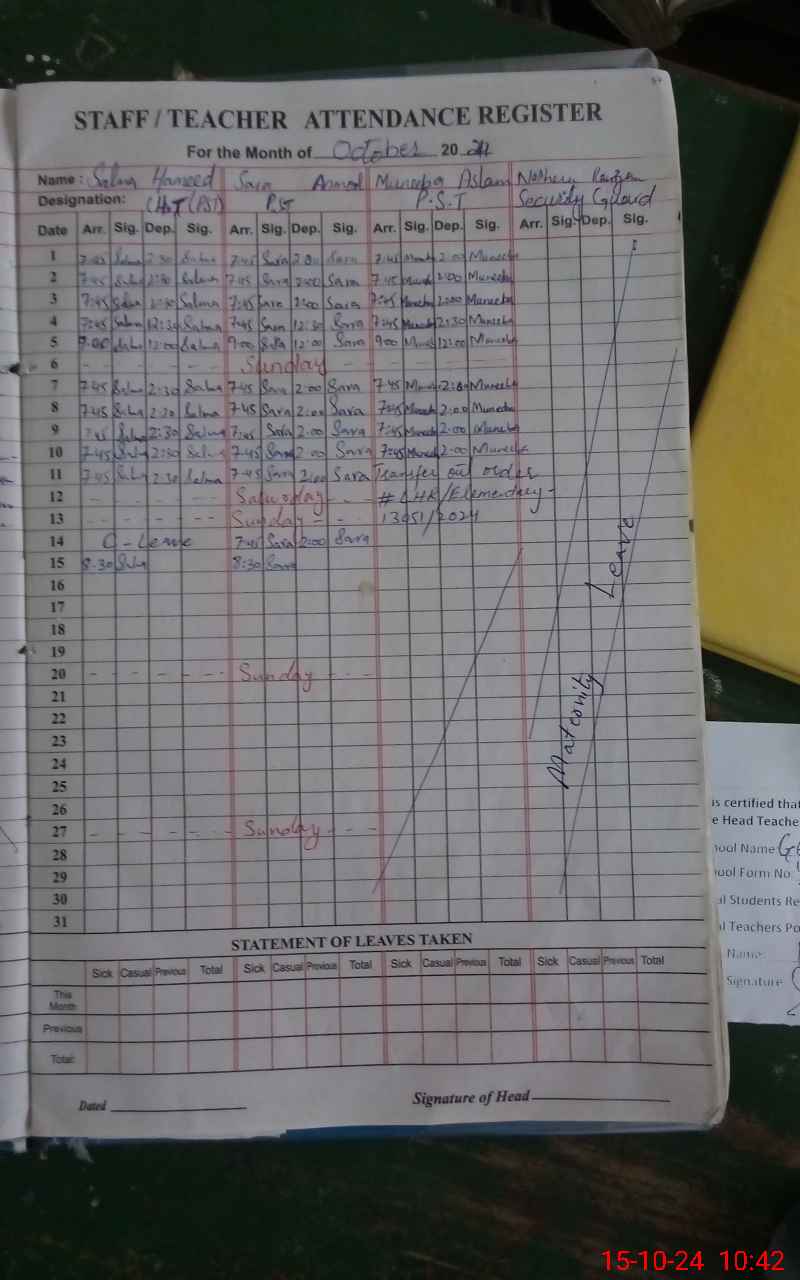 STAFF / TEACHER ATTENDANCE REGISTER
For the Month of October 2024
Name: Salma Hameed Sara Ahmad Muneeba Aslam
Designation: PST P.S.T Security Guard
Date Arr. Sig. Dep. Sig. Arr. Sig. Dep. Sig. Arr. Sig. Dep. Sig. Arr. Sig. Dep. Sig.
1 7:45 Salma 2:30 Salma 7:45 Sara 2:00 Sara 7:45 2:00 Muneeba
2 7:45 Salma 2:30 Salma 7:45 Sara 2:00 Sara 7:45 2:00 Muneeba
3 7:45 Salma 2:30 Salma 7:45 Sara 2:00 Sara 7:45 2:00 Muneeba
4 7:45 Salma 12:30 Salma 7:45 Sara 12:30 Sara 7:45 Muneeba
5 9:00 Salma 12:00 Salma 9:00 Sara 12:00 Sara 9:00 12:00 Muneeba
6 - - - - Sunday - - - -
7 7:45 Salma 2:30 Salma 7:45 Sara 2:00 Sara 7:45 2:00 Muneeba
8 7:45 Salma 2:30 Salma 7:45 Sara 2:00 Sara 7:45 2:00 Muneeba
9 7:45 Salma 2:30 Salma 7:45 Sara 2:00 Sara 7:45 2:00 Muneeba
10 7:45 Salma 2:30 Salma 7:45 Sara 2:00 Sara 7:45 2:00 Muneeba
11 7:45 Salma 2:30 Salma 7:45 Sara 2:00 Sara Transfer out order
12 - - - - Saturday - - # LHR/Elementary-
13 - - - - - Sunday - - 13051/2024
14 C-Leave 7:45 Sara 2:00 Sara
15 8:30 Salma 8:30 Sara
16
17
18
19
20 - - - - - - Sunday - - -
21
22
23
24
25
26
27 - - - - - - Sunday - - -
28
29
30
31
Maternity Leave
STATEMENT OF LEAVES TAKEN
Sick Casual Previous Total Sick Casual Previous Total Sick Casual Previous Total Sick Casual Previous Total
This Month
Previous
Total:
Dated Signature of Head
is certified that
e Head Teache
ool Name
ool Form No:
al Students Re
Teachers Po
Name:
Signature
15-10-24 10:42